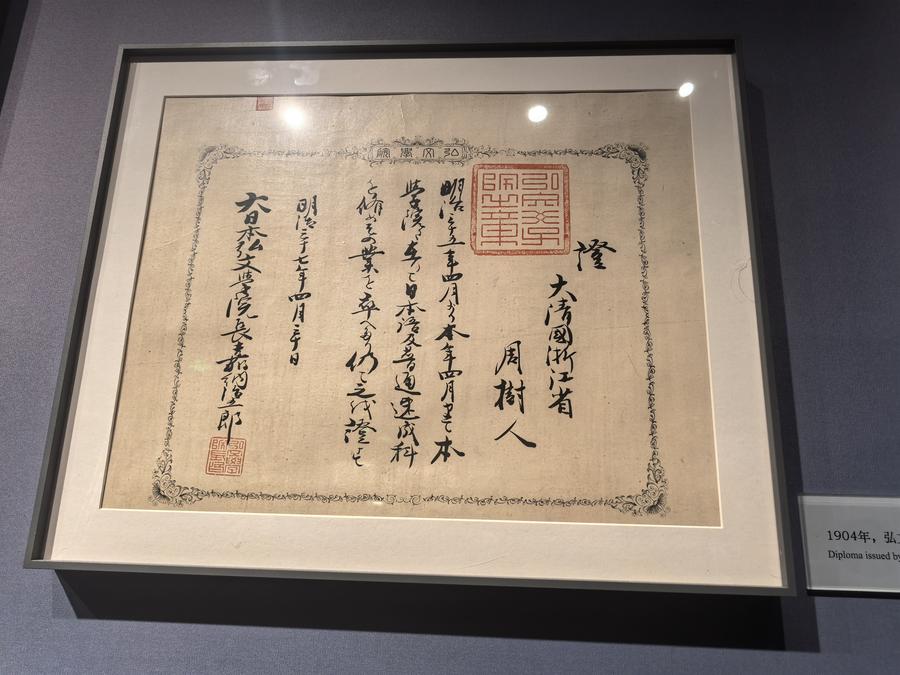 弘文學院
證
大清國浙江省
周樹人
明治三十五年四月より本年四月まで本
學院に在りて日本語及普通速成科
を修めその業を卒へたり仍て之を證す
明治三十七年四月三十日
大日本弘文學院長嘉納治五郎
1904年，弘
Diploma issued by